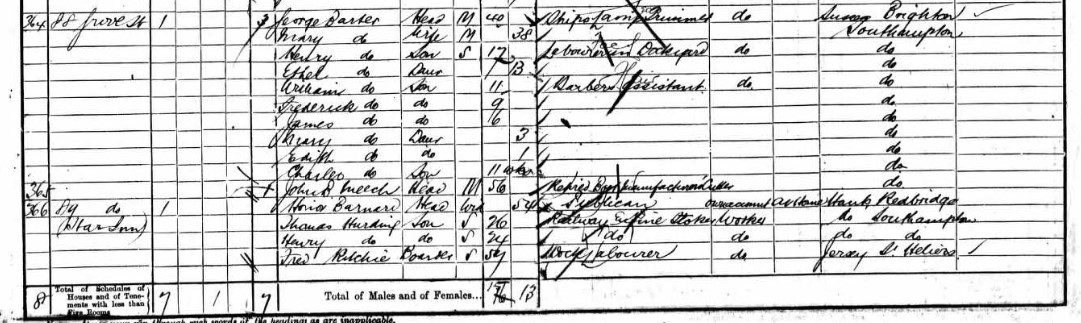 364 88 Grove St 1 George Barker Head M 40 Ships Lamp Trimmer do Sussex Brighton
Mary do Wife M 38 Southampton
Henry do Son S 17 Labourer in Dockyard do do
Ethel do Daur 13 do
William do Son 11 Barbers Assistant do do
Frederick do do 9 do
James do do 6 do
Mary do Daur 3 do
Edith do do 1 do
Charles do Son 11 do
365 John Meech Head M 56 do
366 89 do 1 Barnard Head Wid 54 Publican own account At Home Hants Redbridge
(Star Inn) Thomas Harding Son S 26 Railway Engine Stoker Worker do Southampton
Henry do do S 24 do do do do
Fred Ritchie Boarder S 54 Dock Labourer do Jersey St Heliers
8 Total of Schedules of Houses and of Tenements with less than Five Rooms 7 1 7 Total of Males and of Females... 13